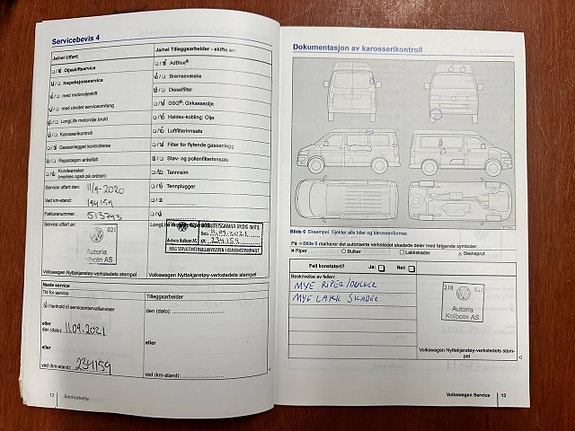 Servicebevis 4
Ja/nei Utført
Ja/nei Tilleggsarbeider - skifte av:
Oljeskiftservice
AdBlue®
Inspeksjonsservice
Bremsevæske
med motoroljeskift
Dieselfilter
med utvidet serviceomfang
DSG®: Girkasseolje
LongLife motorolje brukt
Haldex-kobling: Olje
Karosserikontroll
Luftfilterinnsats
Gassanlegget kontrolleres
Filter for flytende gassanlegg
Reparasjon anbefalt
Støv- og pollenfilterinnsats
Kundeønsker
(merkes også på ordren)
Tannreim
Service utført den:
11/9-2020
Tennplugger
Ved km-stand:
194159
Fakturanummer:
513743
Service utført av:
021
Autoria
Kolbotn AS
11.09.2021
234159
Autoria Kolbotn AS
Volkswagen Nyttekjøretøy-verkstedets stempel
Volkswagen Nyttekjøretøy-verkstedets stempel
Neste service
Tid for service
Tilleggsarbeider
i henhold til serviceintervallanviser
den (dato):
eller
den (dato):
11.09.2021
eller
eller
234159
ved (km-stand):
ved (km-stand):
12
Servicehefte
Dokumentasjon av karosserikontroll
Bilde 6 Eksempel: Gjelder alle biler og karosseriformer.
På ⇒ Bilde 6 markerer det autoriserte verkstedet skadede deler med følgende symboler:
× Riper
○ Bulker
□ Lakkskader
△ Steinsprut
Feil konstatert?
Ja:
Nei:
Beskrivelse av feilen:
MYE RIPER/BULKER
MYE LAKK SKADER
218
021
Autoria
Kolbotn AS
Volkswagen Nyttekjøretøy-verkstedets stem-
pel
Volkswagen Service
13